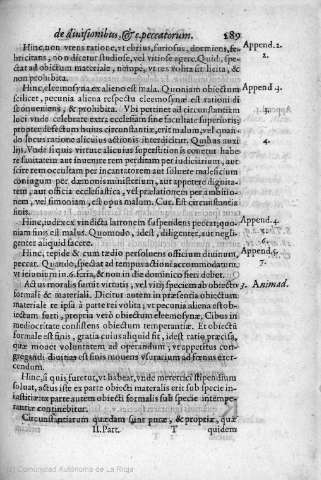 de diuisionibus, & c. peccatorum. 289
Hinc, non vtens ratione, vt ebrius, furiosus, dormiens, fe- Append. 2.
bricitans, non dicetur studiose, vel vitiose agere. Quid, spe- 2.
ctat ad obiectum materiale, nempè, vt res volita sit licita, &
non prohibita.
Hinc, eleemosyna ex alieno est mala. Quoniam obiectum Append 3.
scilicet, pecunia aliena respectu eleemosynæ est rationi di
sconueniens, & prohibita. Vbi pertinet ad circunstantiam 3.
loci vnde celebrare extra ecclesiam sine facultate superioris;
propter defectum huius circunstantiæ, erit malum, vel quan-
do locus ratione alicuius actionis interdicitur. Quibus auxi 4.
lijs. Vnde si quis virtute alicuius superstitionis conetur habe-
re sanitatem aut inuenire rem perditam per iudiciarium, aut
scire rem occultam per incantationem aut soluere maleficium
coniugum per dæmonis ministerium, aut appetere dignita-
tem, aut officia ecclesiastica, vel prælationem per ambitio-
nem, vel simoniam, est opus malum. Cur. Est circunstantia
finis.
Hinc, iudex ex vindicta latronem suspendens peccat, quo- Append. 4.
niam finis est malus. Quomodo, idest, diligenter, aut negli- 5.
genter aliquid facere. 6.
Hinc, tepidè & cum tædio persoluens officium diuinum, Append. 5.
peccat. Quando, spectat ad tempus actioni accommodatum, 7.
vt ieiunium in 6. feria, & non in die dominico fieri debet.
Actus moralis sumit virtutis, vel vitij speciem ab obiecto 3. Animad.
formali & materiali. Dicitur autem in præsentia obiectum
materiale res ipsa à parte rei volita, vt pecunia aliena est ob-
iectum furti, propria verò obiectum eleemosynæ, Cibus in
mediocritate consistens obiectum temperantiæ. Et obiectū
formale est finis, gratia cuius aliquid fit, idest ratio præcisa,
quæ mouet voluntatem ad operandum, vt appetitus con-
gregandi diuitias est finis mouens vsurarium ad fœnus exer-
cendum.
Hinc, si quis furetur, vt habeat, vnde meretrici stipendium
soluat, actus iste ex parte obiecti materialis erit sub specie in-
iustitiæ, ex parte autem obiecti formalis sub specie intempe-
rantiæ continebitur.
Circunstantiarum quædam sunt puræ, & propriæ, quæ
II. Part. T quidem
Comunidad Autónoma de La Rioja